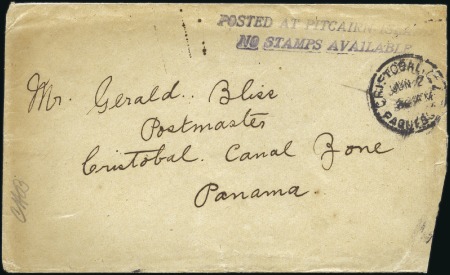 POSTED AT PITCAIRN
NO STAMPS AVAILABLE
CRISTOBAL
JUN 2
PAQUEBOT
Mr. Gerald. Bliss
Postmaster
Cristobal. Canal Zone
Panama.